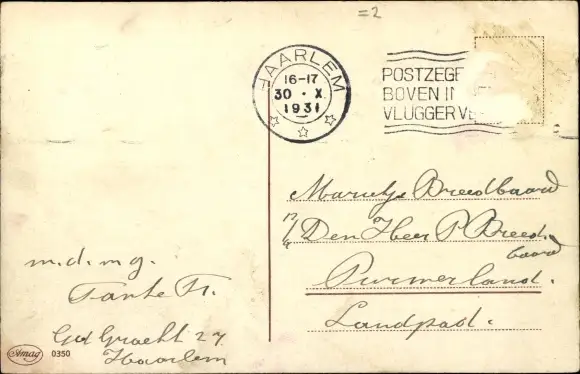 =2
HAARLEM
16-17
30 · X
1931
POSTZEGE
BOVEN IN
VLUGGER VE
Marietje Breedbaard
p/a Den Heer P. Breed-
baard
Purmerland.
Landpad.
m. d. m. g.
Tante Tr.
Ged Gracht 27
Haarlem
Amag 0350